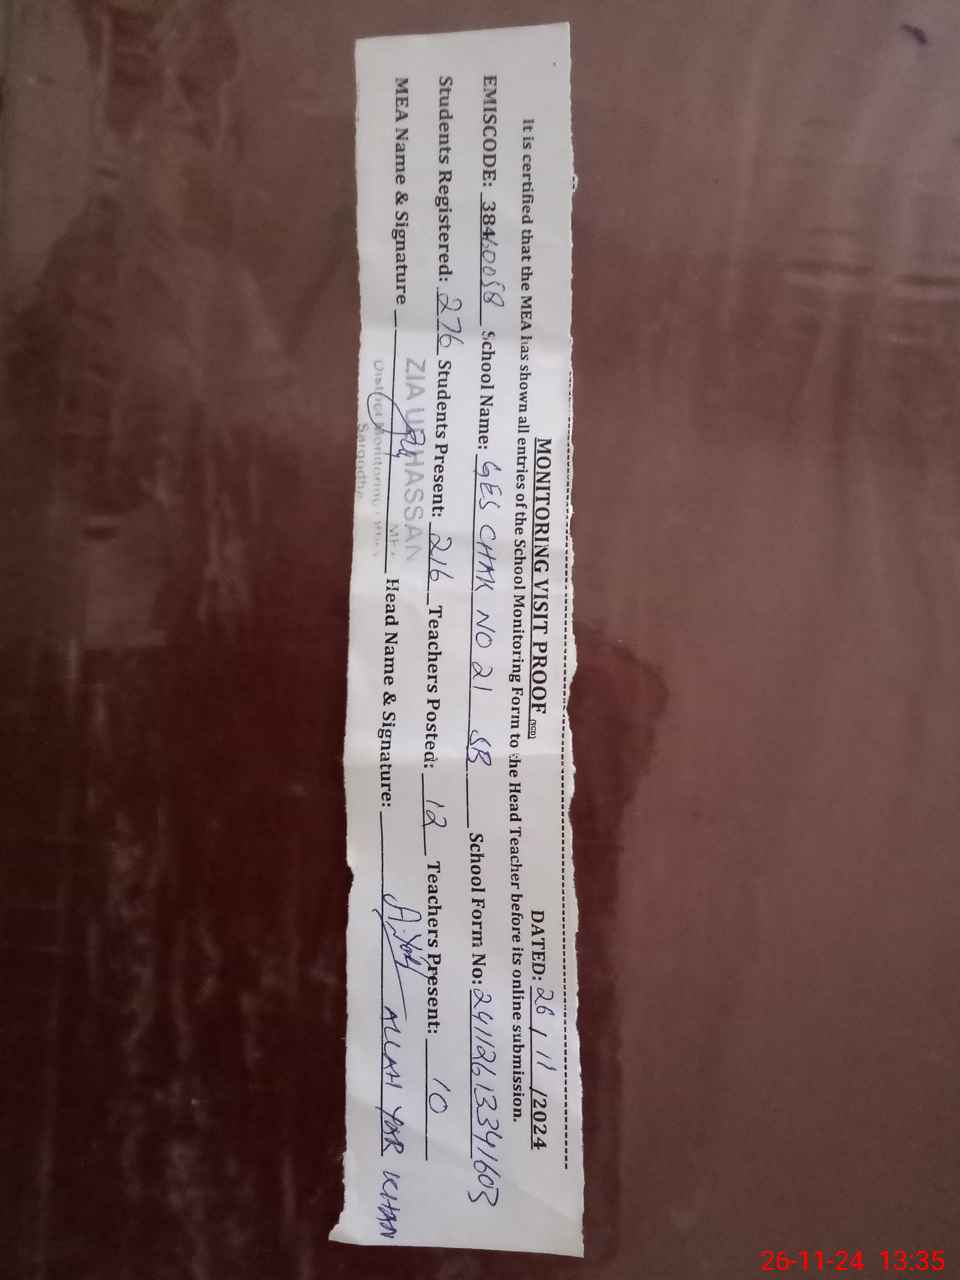 MONITORING VISIT PROOF (SED) DATED: 26 / 11 /2024
It is certified that the MEA has shown all entries of the School Monitoring Form to the Head Teacher before its online submission.
EMISCODE: 38460058 School Name: GES CHAK NO 21 SB School Form No: 24112613341603
Students Registered: 276 Students Present: 216 Teachers Posted: 12 Teachers Present: 10
MEA Name & Signature Head Name & Signature: A.Yar ALLAH YAR KHAN
ZIA UR HASSAN
MEA
District Monitoring
Sargodha
26-11-24 13:35